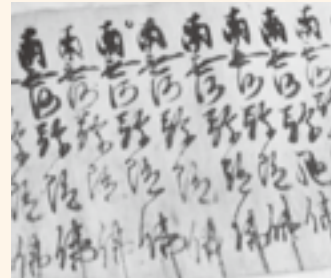 南無阿弥陀佛
南無阿弥陀佛
南無阿弥陀佛
南無阿弥陀佛
南無阿弥陀佛
南無阿弥陀佛
南無阿弥陀佛
南無阿弥陀佛